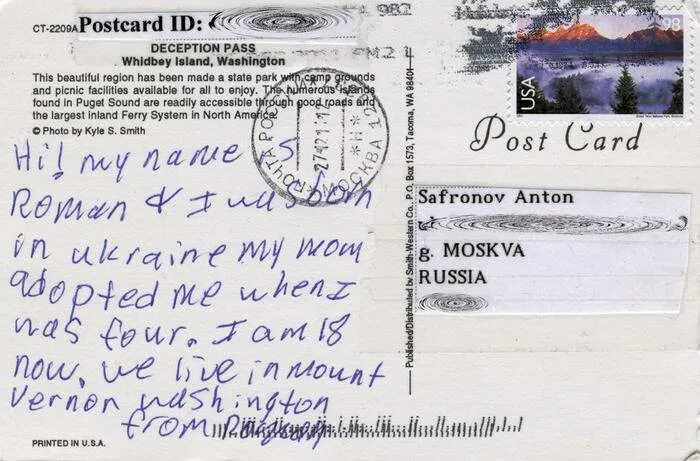 CT-2209A Postcard ID:
DECEPTION PASS
Whidbey Island, Washington
This beautiful region has been made a state park with camp grounds
and picnic facilities available for all to enjoy. The numerous islands
found in Puget Sound are readily accessible through good roads and
the largest inland Ferry System in North America.
© Photo by Kyle S. Smith
Hi! my name is
Roman & I was born
in ukraine my mom
adopted me when I
was four. I am 18
now. we live in mount
vernon washington
from Roman
PRINTED IN U.S.A.
ПОЧТА РОССИИ
МОСКВА
Published/Distributed by Smith-Western Co., P.O. Box 1573, Tacoma, WA 98401
USA
98
Post Card
Safronov Anton
g. MOSKVA
RUSSIA